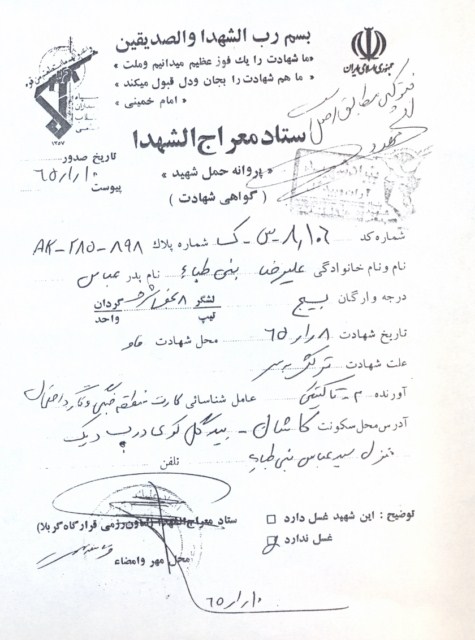 بسم رب الشهدا والصدیقین
«ما شهادت را یك فوز عظیم میدانیم وملت»
«ما هم شهادت را بجان ودل قبول میکند»
«امام خمینی»
جمهوری اسلامی ایران
فتوکپی مطابق اصل
ستاد معراج الشهدا
«پروانه حمل شهید»
(گواهی شهادت)
تاریخ صدور
پیوست
شماره کد ۸٫۱۰۶-س-ک شماره پلاك AK-۲۸۵-۸۹۸
نام ونام خانوادگی علیرضا بنی طباء نام پدر عباس
درجه و ارگان بسیج لشگر تیپ ۸ نجف اشرف گردان واحد
تاریخ شهادت محل شهادت فاو
علت شهادت ترکش به سر
آورنده عامل شناسائی کارت منطقه جنگی
آدرس محل سکونت کاشان - بیدگل کوی درب ریگ
منزل سید عباس بنی طباء
تلفن
توضیح : این شهید غسل دارد
غسل ندارد
ستاد معراج الشهدا (تعاون رزمی قرارگاه کربلا)
محل مهر وامضاء